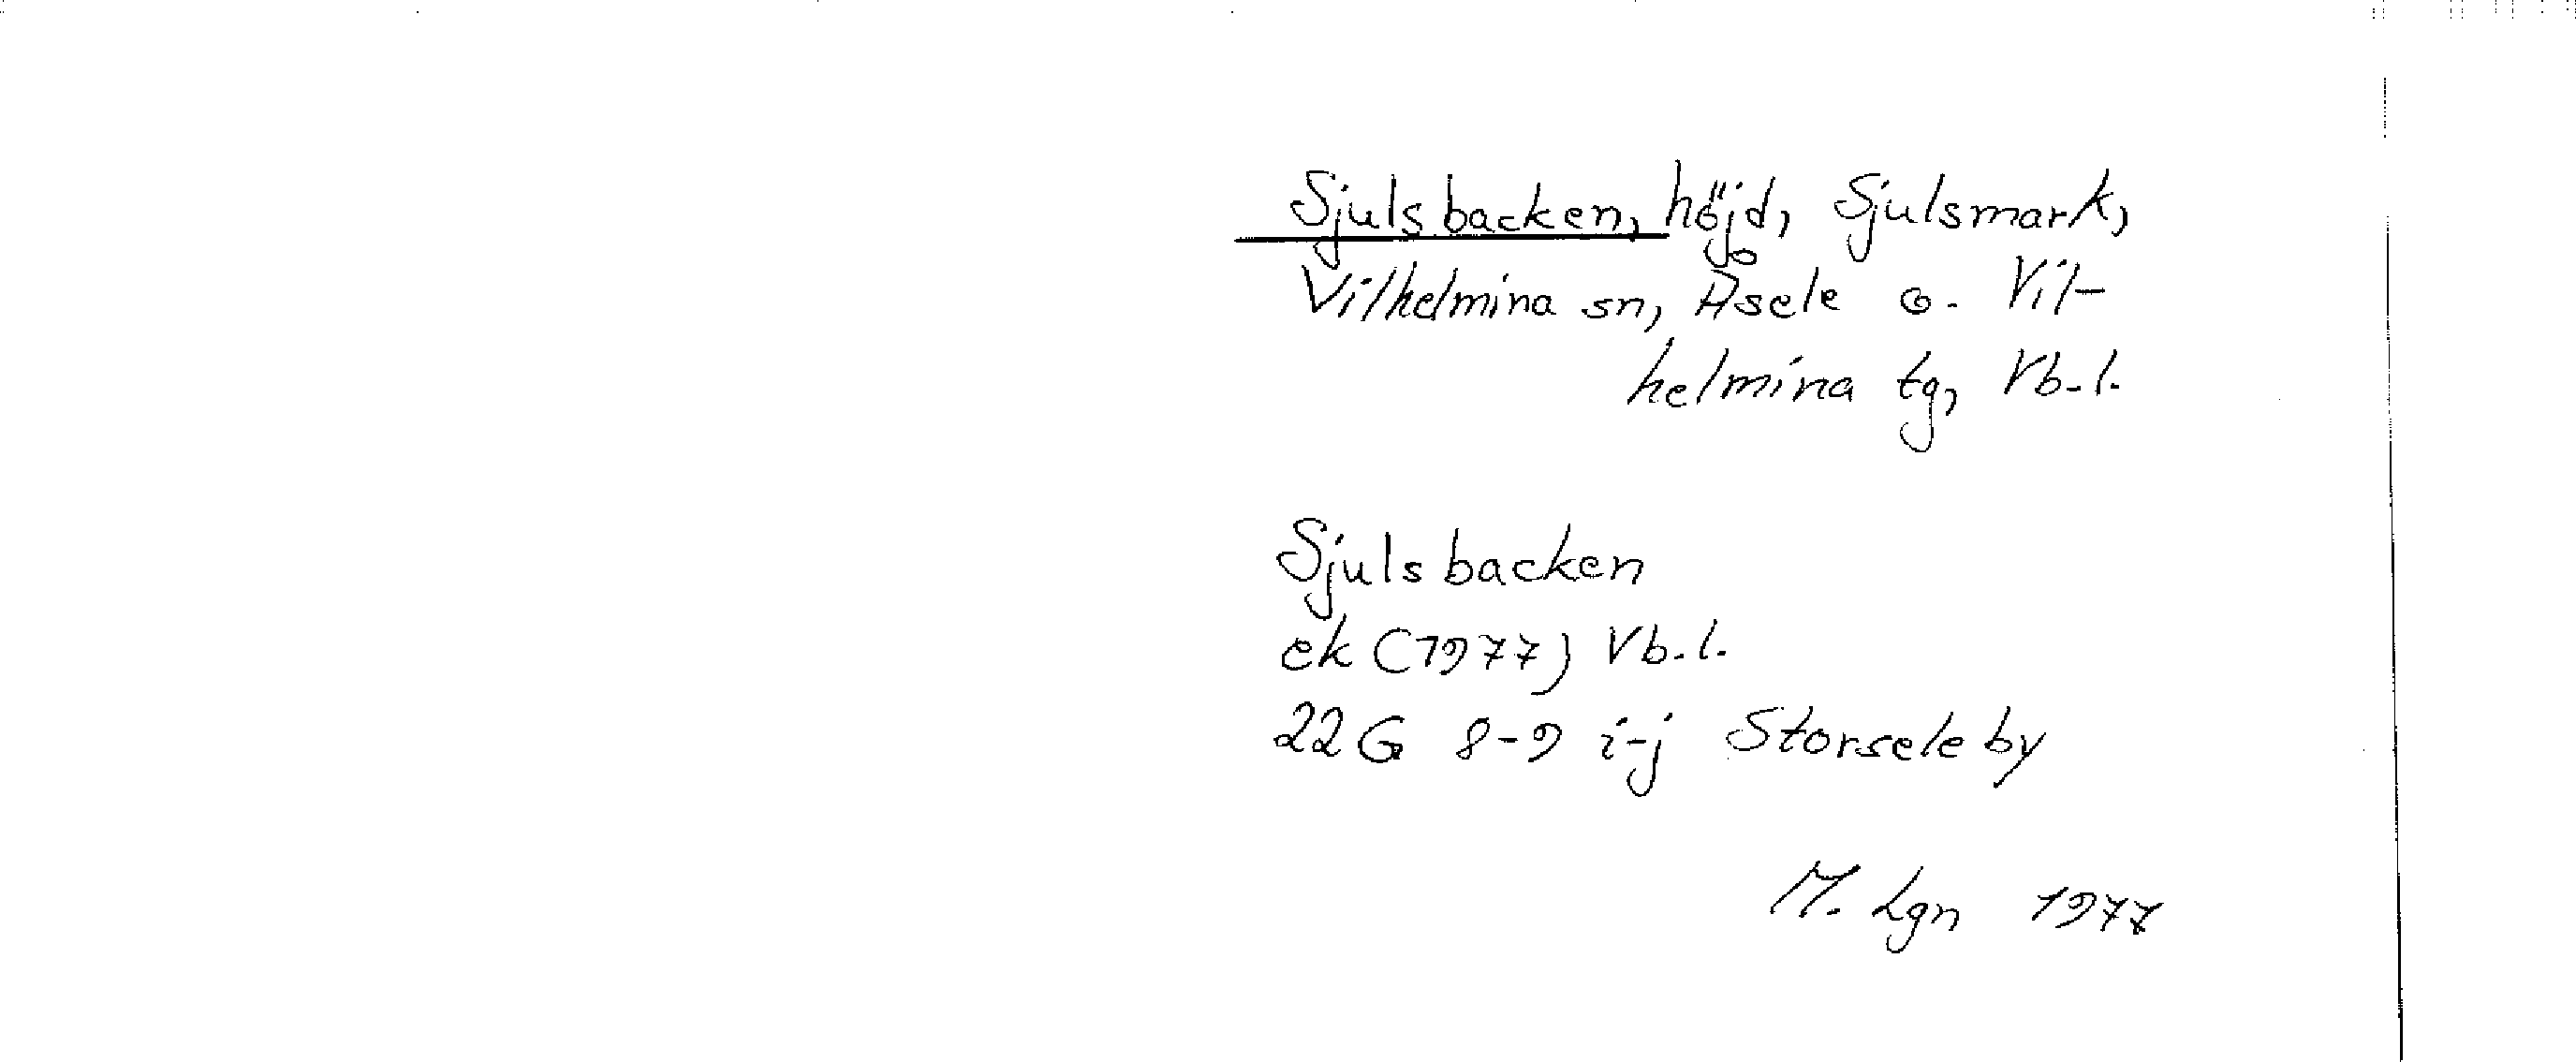 Sjulsbacken, höjd, Sjulsmark,
Vilhelmina sn, Åsele o. Vil-
helmina tg, Vb. l.
Sjulsbacken
ek (1977) Vb. l.
22 G 8-9 i-j Storseleby
M. Lgn 1977